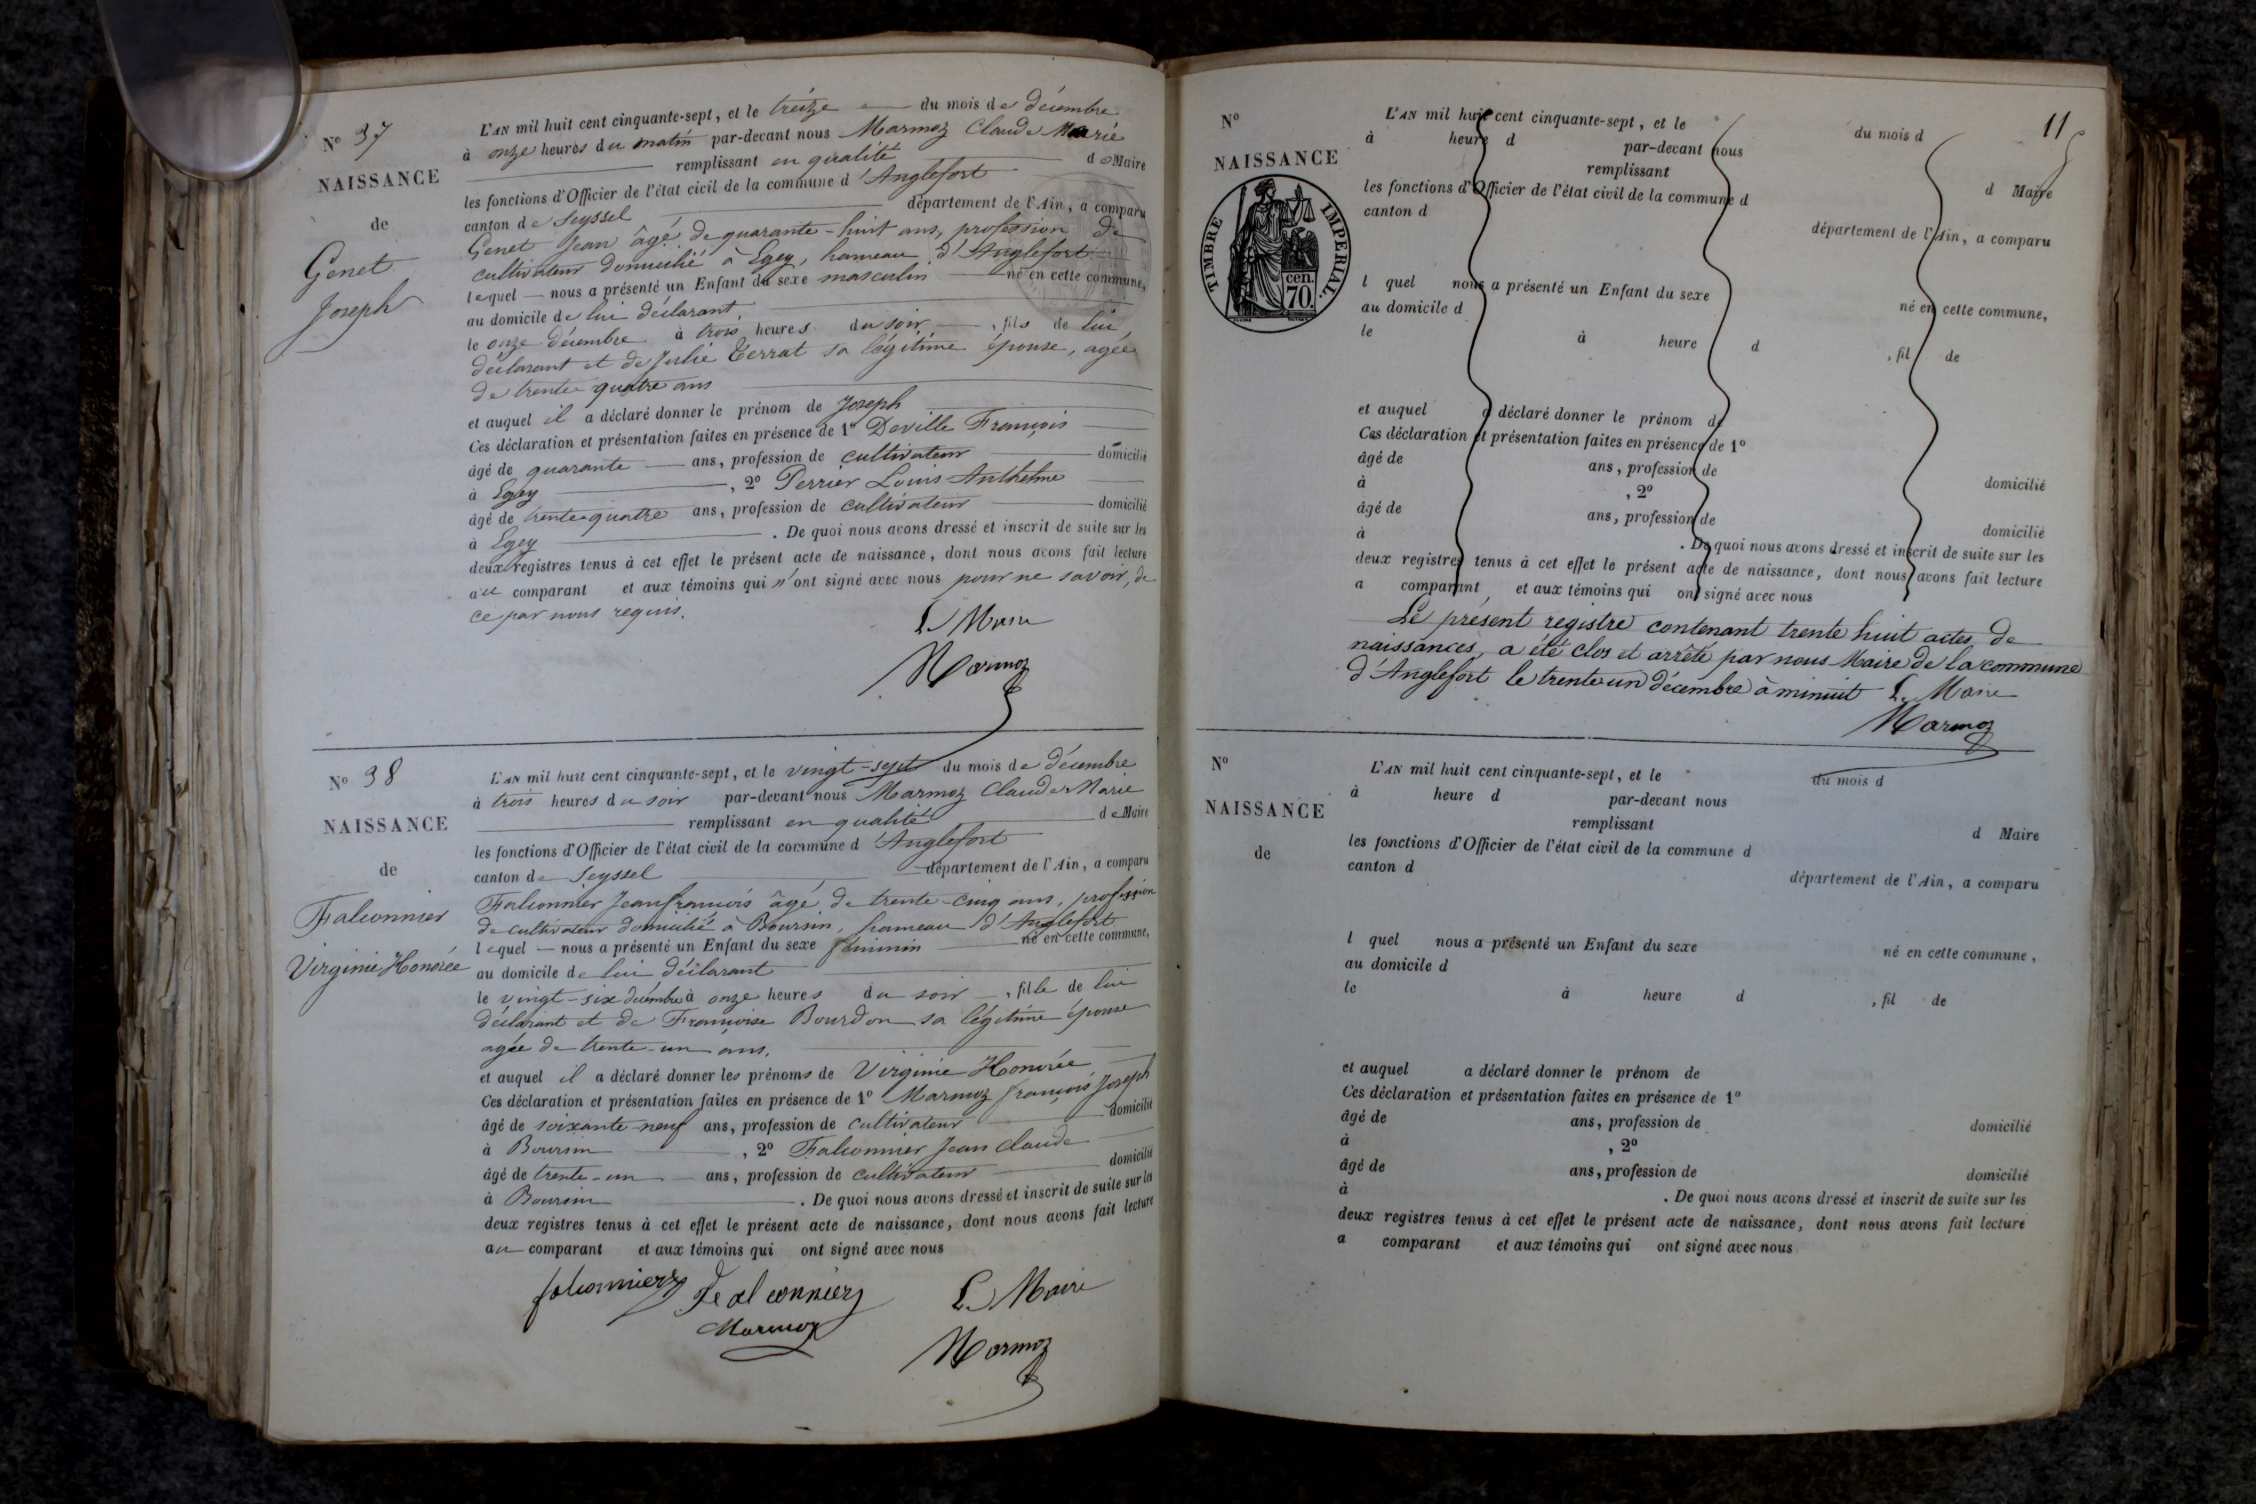 N° 37
NAISSANCE
de
Genet
Joseph
L'AN mil huit cent cinquante-sept, et le treize du mois de décembre
à onze heures du matin par-devant nous Marmoz Claude Marie
remplissant en qualité de Maire
les fonctions d'Officier de l'état civil de la commune d'Anglefort
canton de Seyssel département de l'Ain, a comparu
Genet Jean âgé de quarante-huit ans, profession de
cultivateur domicilié à Egey, hameau d'Anglefort
lequel nous a présenté un Enfant du sexe masculin né en cette commune,
au domicile de lui déclarant,
le onze décembre à trois heures du soir, fils de lui
déclarant et de Julie Terrat sa légitime épouse, agée
de trente quatre ans
et auquel il a déclaré donner le prénom de Joseph
Ces déclaration et présentation faites en présence de 1° Deville François
âgé de quarante ans, profession de cultivateur domicilié
à Egey, 2° Perrier Louis Anthelme
âgé de trente-quatre ans, profession de cultivateur domicilié
à Egey. De quoi nous avons dressé et inscrit de suite sur les
deux registres tenus à cet effet le présent acte de naissance, dont nous avons fait lecture
au comparant et aux témoins qui n'ont signé avec nous pour ne savoir, de
ce par nous requis.
Le Maire
Marmoz
N° 38
NAISSANCE
de
Falconnier
Virginie Honorée
L'AN mil huit cent cinquante-sept, et le vingt-sept du mois de décembre
à trois heures du soir par-devant nous Marmoz Claude Marie
remplissant en qualité de Maire
les fonctions d'Officier de l'état civil de la commune d'Anglefort
canton de Seyssel département de l'Ain, a comparu
Falconnier Jean françois âgé de trente-cinq ans, profession
de cultivateur domicilié à Boursin, hameau d'Anglefort
lequel nous a présenté un Enfant du sexe féminin né en cette commune,
au domicile de lui déclarant
le vingt-six décembre à onze heures du soir, fille de lui
déclarant et de Françoise Bourdon sa légitime épouse
agée de trente-un ans.
et auquel il a déclaré donner les prénoms de Virginie Honorée
Ces déclaration et présentation faites en présence de 1° Marmoz françois Joseph
âgé de soixante-neuf ans, profession de cultivateur domicilié
à Boursin, 2° Falconnier Jean Claude
âgé de trente-un ans, profession de cultivateur domicilié
à Boursin. De quoi nous avons dressé et inscrit de suite sur les
deux registres tenus à cet effet le présent acte de naissance, dont nous avons fait lecture
au comparant et aux témoins qui ont signé avec nous
falconnier Falconnier Le Maire
Marmoz Marmoz
11
N°
NAISSANCE
TIMBRE IMPERIAL.
cen.
70.
L'AN mil huit cent cinquante-sept, et le du mois d
à heure d par-devant nous
remplissant d Maire
les fonctions d'Officier de l'état civil de la commune d
canton d département de l'Ain, a comparu
l quel nous a présenté un Enfant du sexe né en cette commune,
au domicile d
le à heure d , fil de
et auquel a déclaré donner le prénom de
Ces déclaration et présentation faites en présence de 1°
âgé de ans, profession de domicilié
à , 2°
âgé de ans, profession de domicilié
à . De quoi nous avons dressé et inscrit de suite sur les
deux registres tenus à cet effet le présent acte de naissance, dont nous avons fait lecture
a comparant et aux témoins qui ont signé avec nous
Le présent registre contenant trente huit actes de
naissances, a été clos et arrêté par nous Maire de la commune
d'Anglefort le trente un décembre à minuit Le Maire
Marmoz
N°
NAISSANCE
de
L'AN mil huit cent cinquante-sept, et le du mois d
à heure d par-devant nous
remplissant d Maire
les fonctions d'Officier de l'état civil de la commune d
canton d département de l'Ain, a comparu
l quel nous a présenté un Enfant du sexe né en cette commune,
au domicile d
le à heure d , fil de
et auquel a déclaré donner le prénom de
Ces déclaration et présentation faites en présence de 1°
âgé de ans, profession de domicilié
à , 2°
âgé de ans, profession de domicilié
à . De quoi nous avons dressé et inscrit de suite sur les
deux registres tenus à cet effet le présent acte de naissance, dont nous avons fait lecture
a comparant et aux témoins qui ont signé avec nous